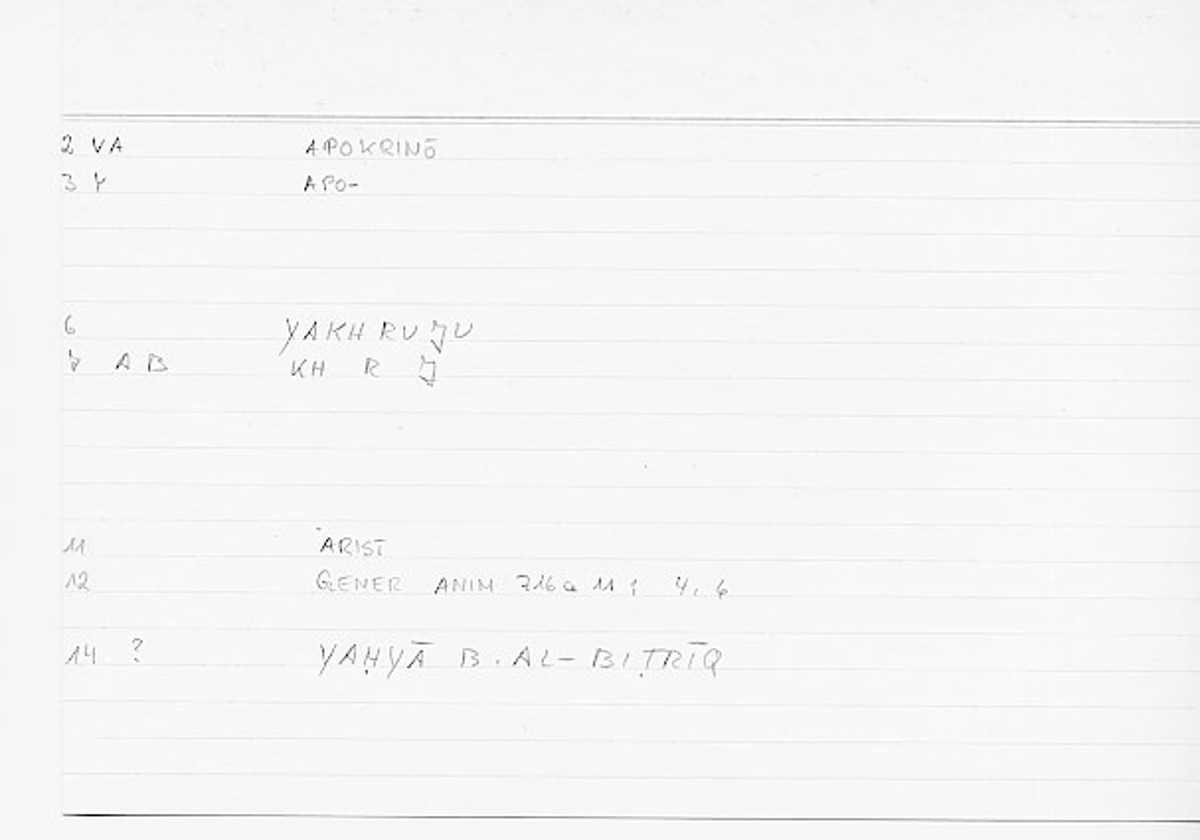 2 VA APOKRINŌ
3 Y APO-
6 YAKH RU JU
7 A B KH R J
11 ARIST
12 GENER ANIM 716a 11; 4, 6
14 ? YAḤYĀ B. AL-BIṬRĪQ